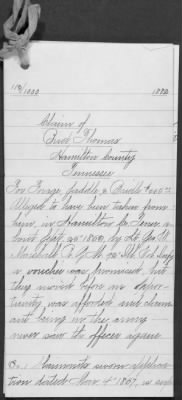 118/1000 1882
Claim of
Thomas
Hamilton County
Tennessee
For Forage, Saddle & Bridle
Alleged to have been taken from
him, in Hamilton Co Tenn. a
bout Sept 20" 1863, by Lt
Marshall R. Q. M. 72" Ill. Vol Inf'y
a voucher was promised, but
they moved before an oppor-
tunity was afforded and claim-
ant being in the army
never saw the officer again
Claimants sworn applica-
tion dated Mar 4" 1867, is